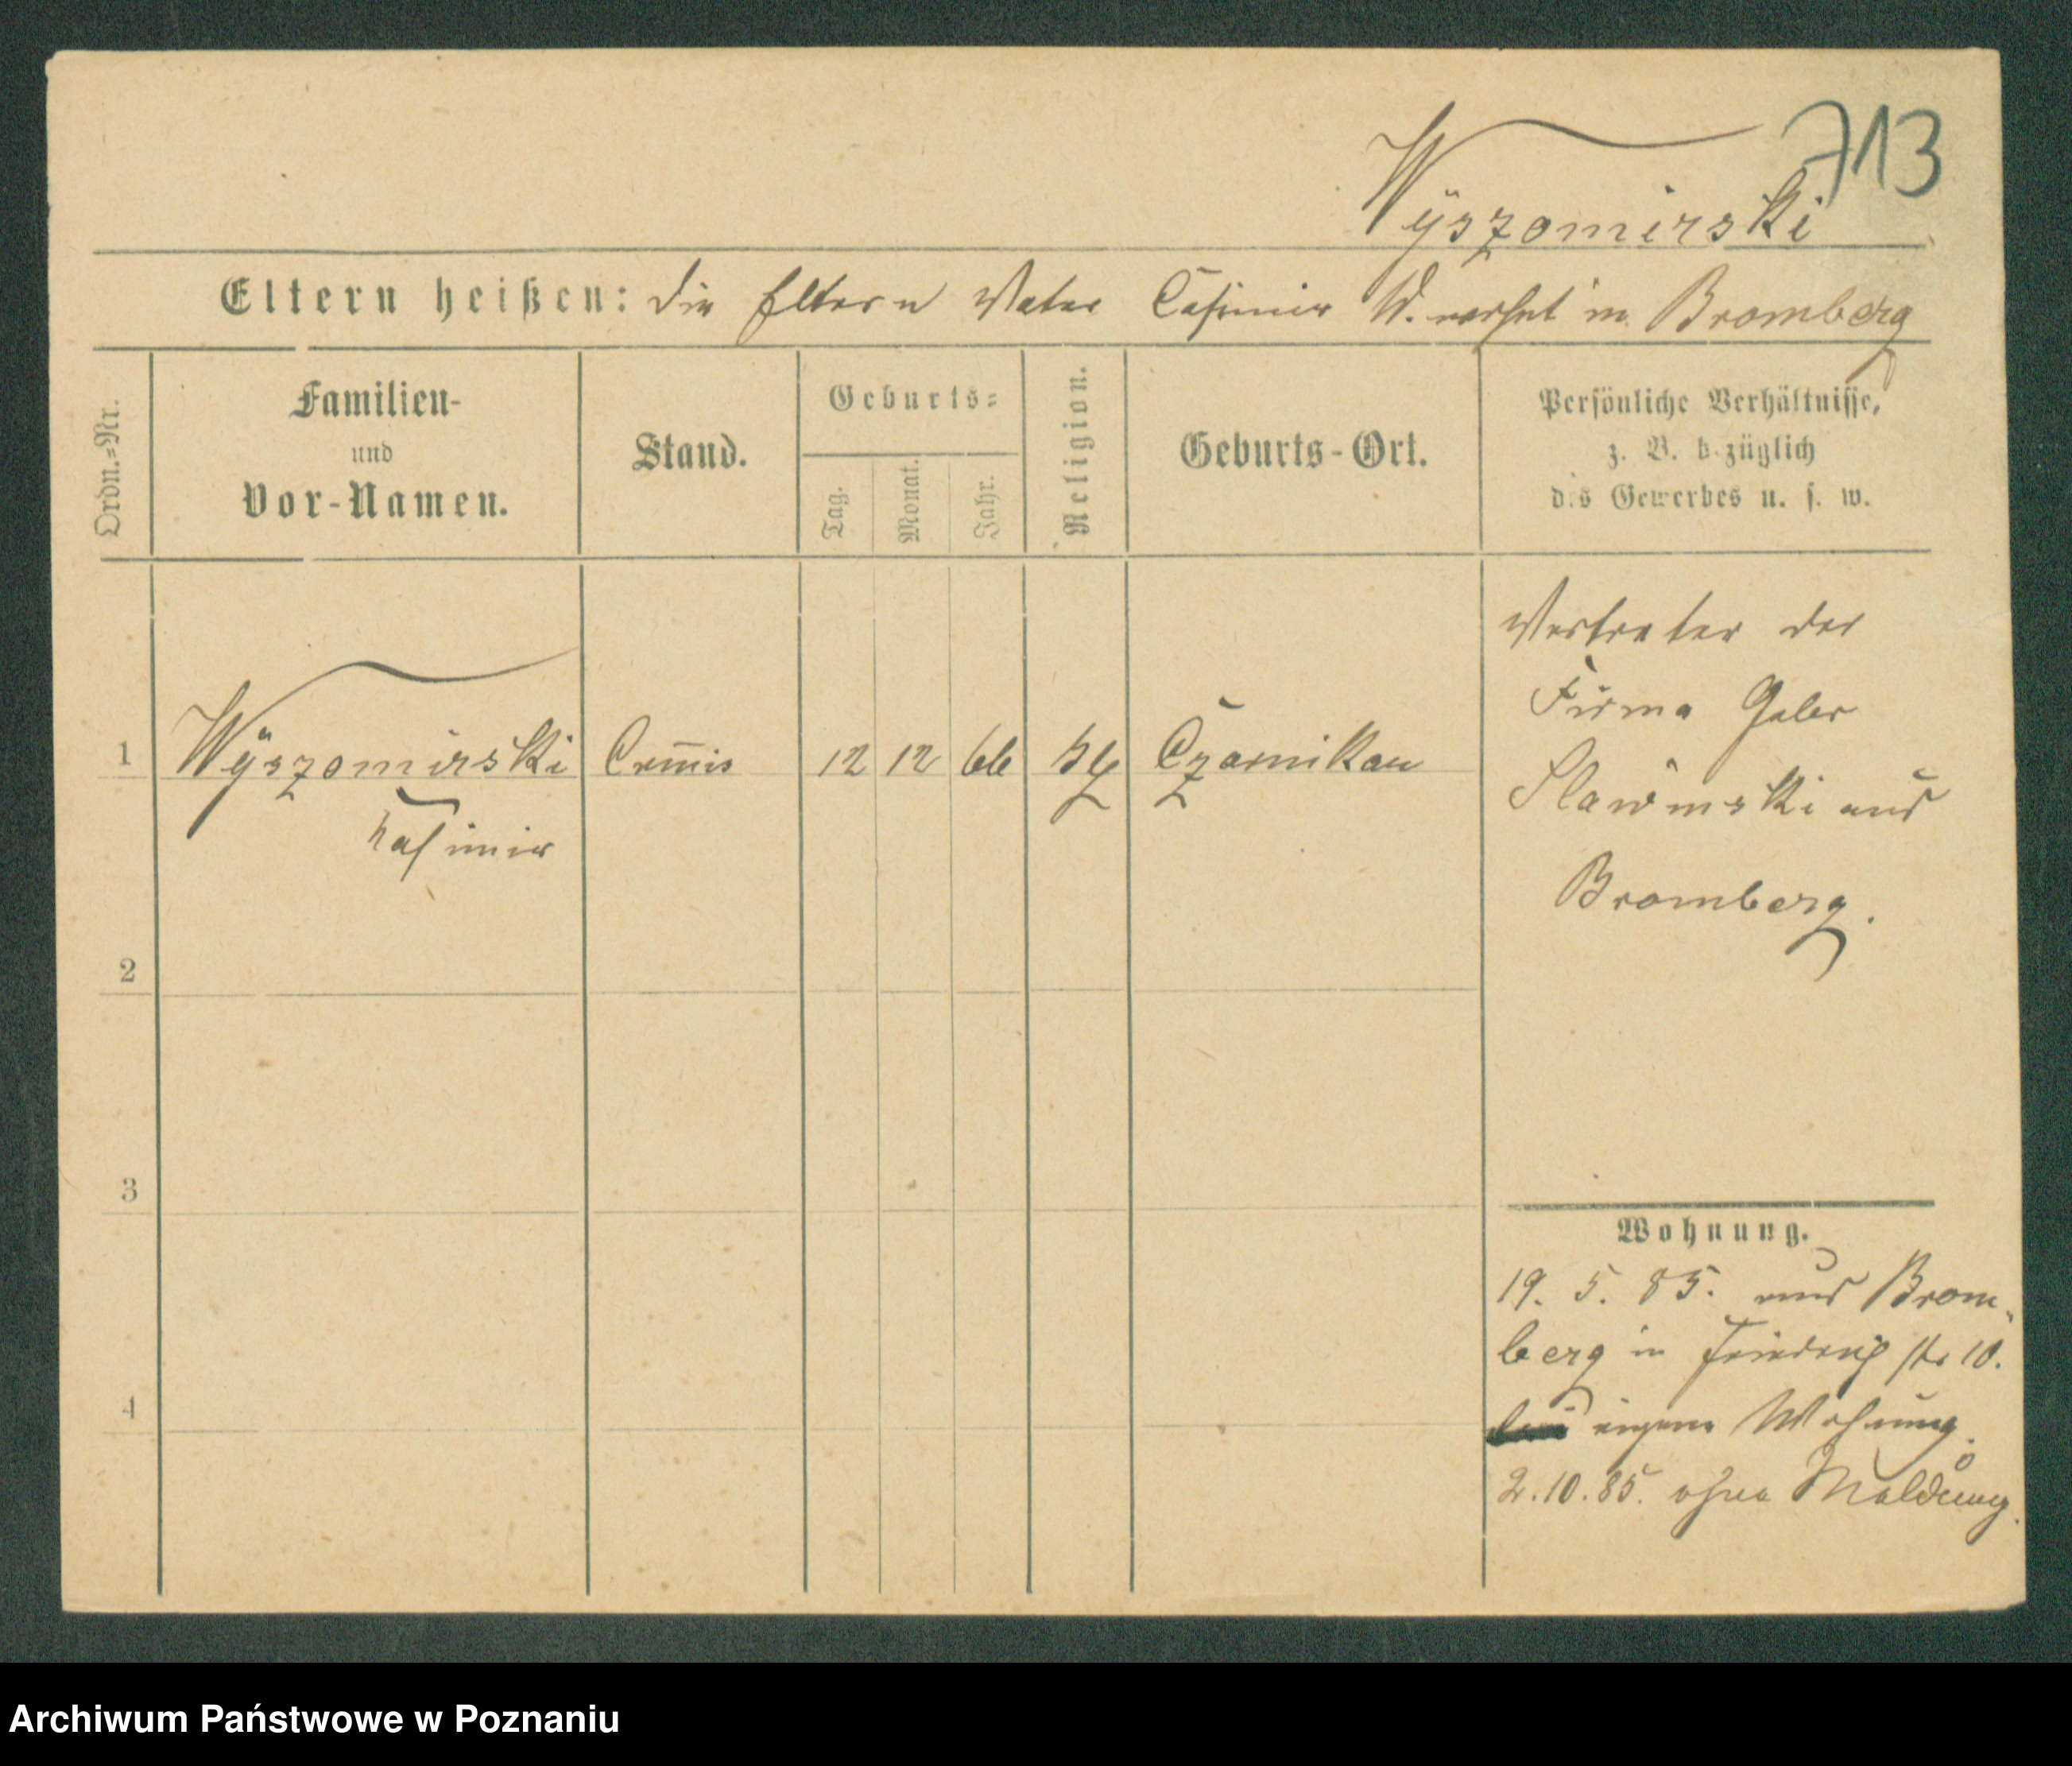 713
Wÿszomirski
Eltern heißen: die Eltern Vater Casimir W. wohnt in Bromberg
Ordn.-Nr.
Familien-
und
Vor-Namen.
Stand.
Geburts-
Tag.
Monat.
Jahr.
Religion.
Geburts-Ort.
Persönliche Verhältnisse,
z. B. bezüglich
des Gewerbes u. s. w.
1 Wÿszomirski Commis 12 12 66 kth Czarnikau
Kasimir
Vertreter der
Firma
Slawinski aus
Bromberg.
2
3
4
Wohnung.
19. 5. 85. aus Brom-
berg in Friedrich str 10.
eigene Wohnung.
2.10.85. ohne Meldung.
Archiwum Państwowe w Poznaniu